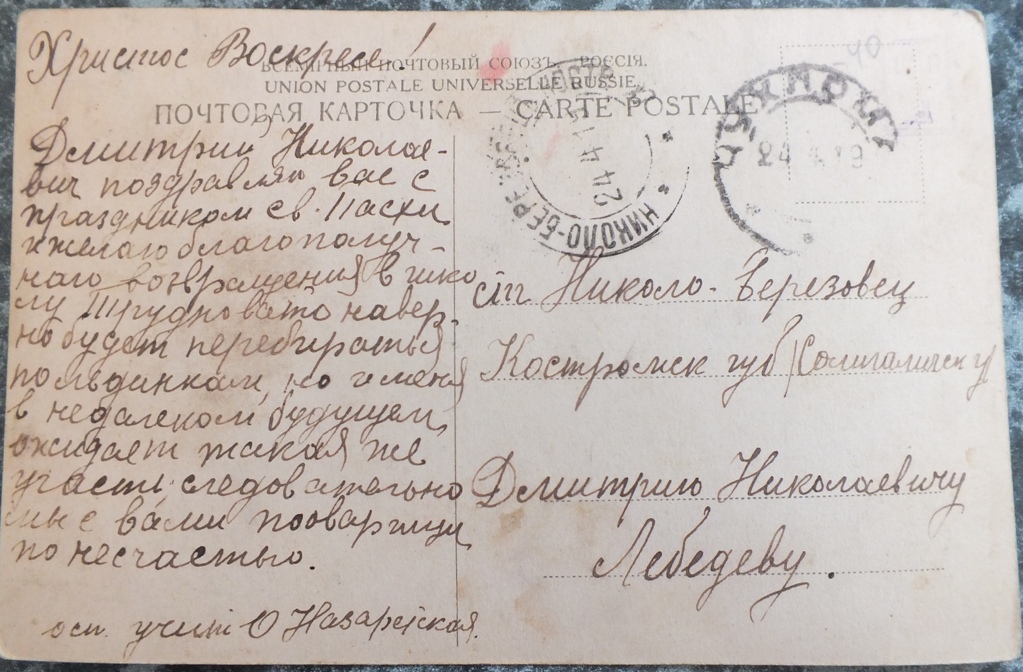 Христос Воскресе!
ВСЕМІРНЫЙ ПОЧТОВЫЙ СОЮЗЪ. РОССІЯ.
UNION POSTALE UNIVERSELLE RUSSIE.
ПОЧТОВАЯ КАРТОЧКА — CARTE POSTALE
Дмитрий Николае-
вич поздравляю вас с
праздником св. Пасхи
и желаю благополуч-
наго возвращения в шко
лу Трудновато навер-
но будет перебираться
по льдинкам, но и меня
в недалеком будущем
ожидает такая же
участь следовательно
мы с вами товарищи
по несчастью.
учит О Назаретская.
НИКОЛО-БЕРЕ
24 4
24 4 19
40
Николо-Березовец
Костромск губ (Солигаличск у)
Дмитрию Николаевичу
Лебедеву.